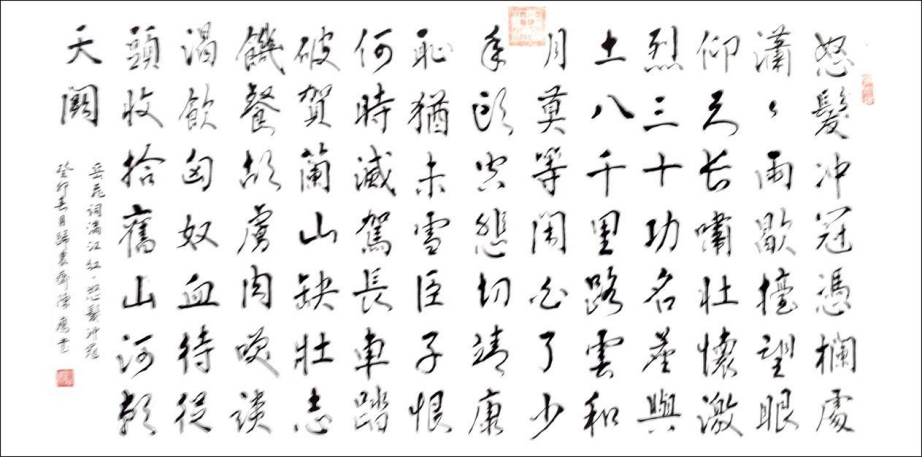 怒髮冲冠憑欄處
瀟〻雨歇擡望眼
仰天长嘯壯懷激
烈三十功名塵與
土八千里路雲和
月莫等闲白了少
年頭空悲切靖康
恥猶未雪臣子恨
何時滅駕長車踏
破賀蘭山缺壯志
饑餐胡虜肉笑談
渴飲匈奴血待從
頭收拾舊山河朝
天闕
岳飛词满江红·怒髮冲冠
癸卯春月歸